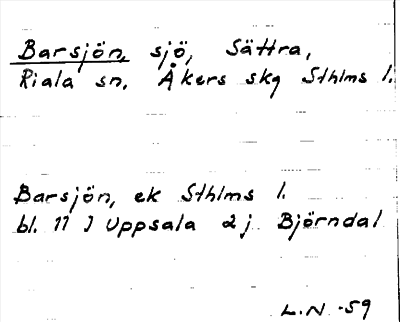 Barsjön, sjö, Sättra,
Riala sn. Åkers skg Sthlms l.
Barsjön, ek Sthlms l.
bl. 11 J Uppsala 2 j. Björndal
L.N. -59